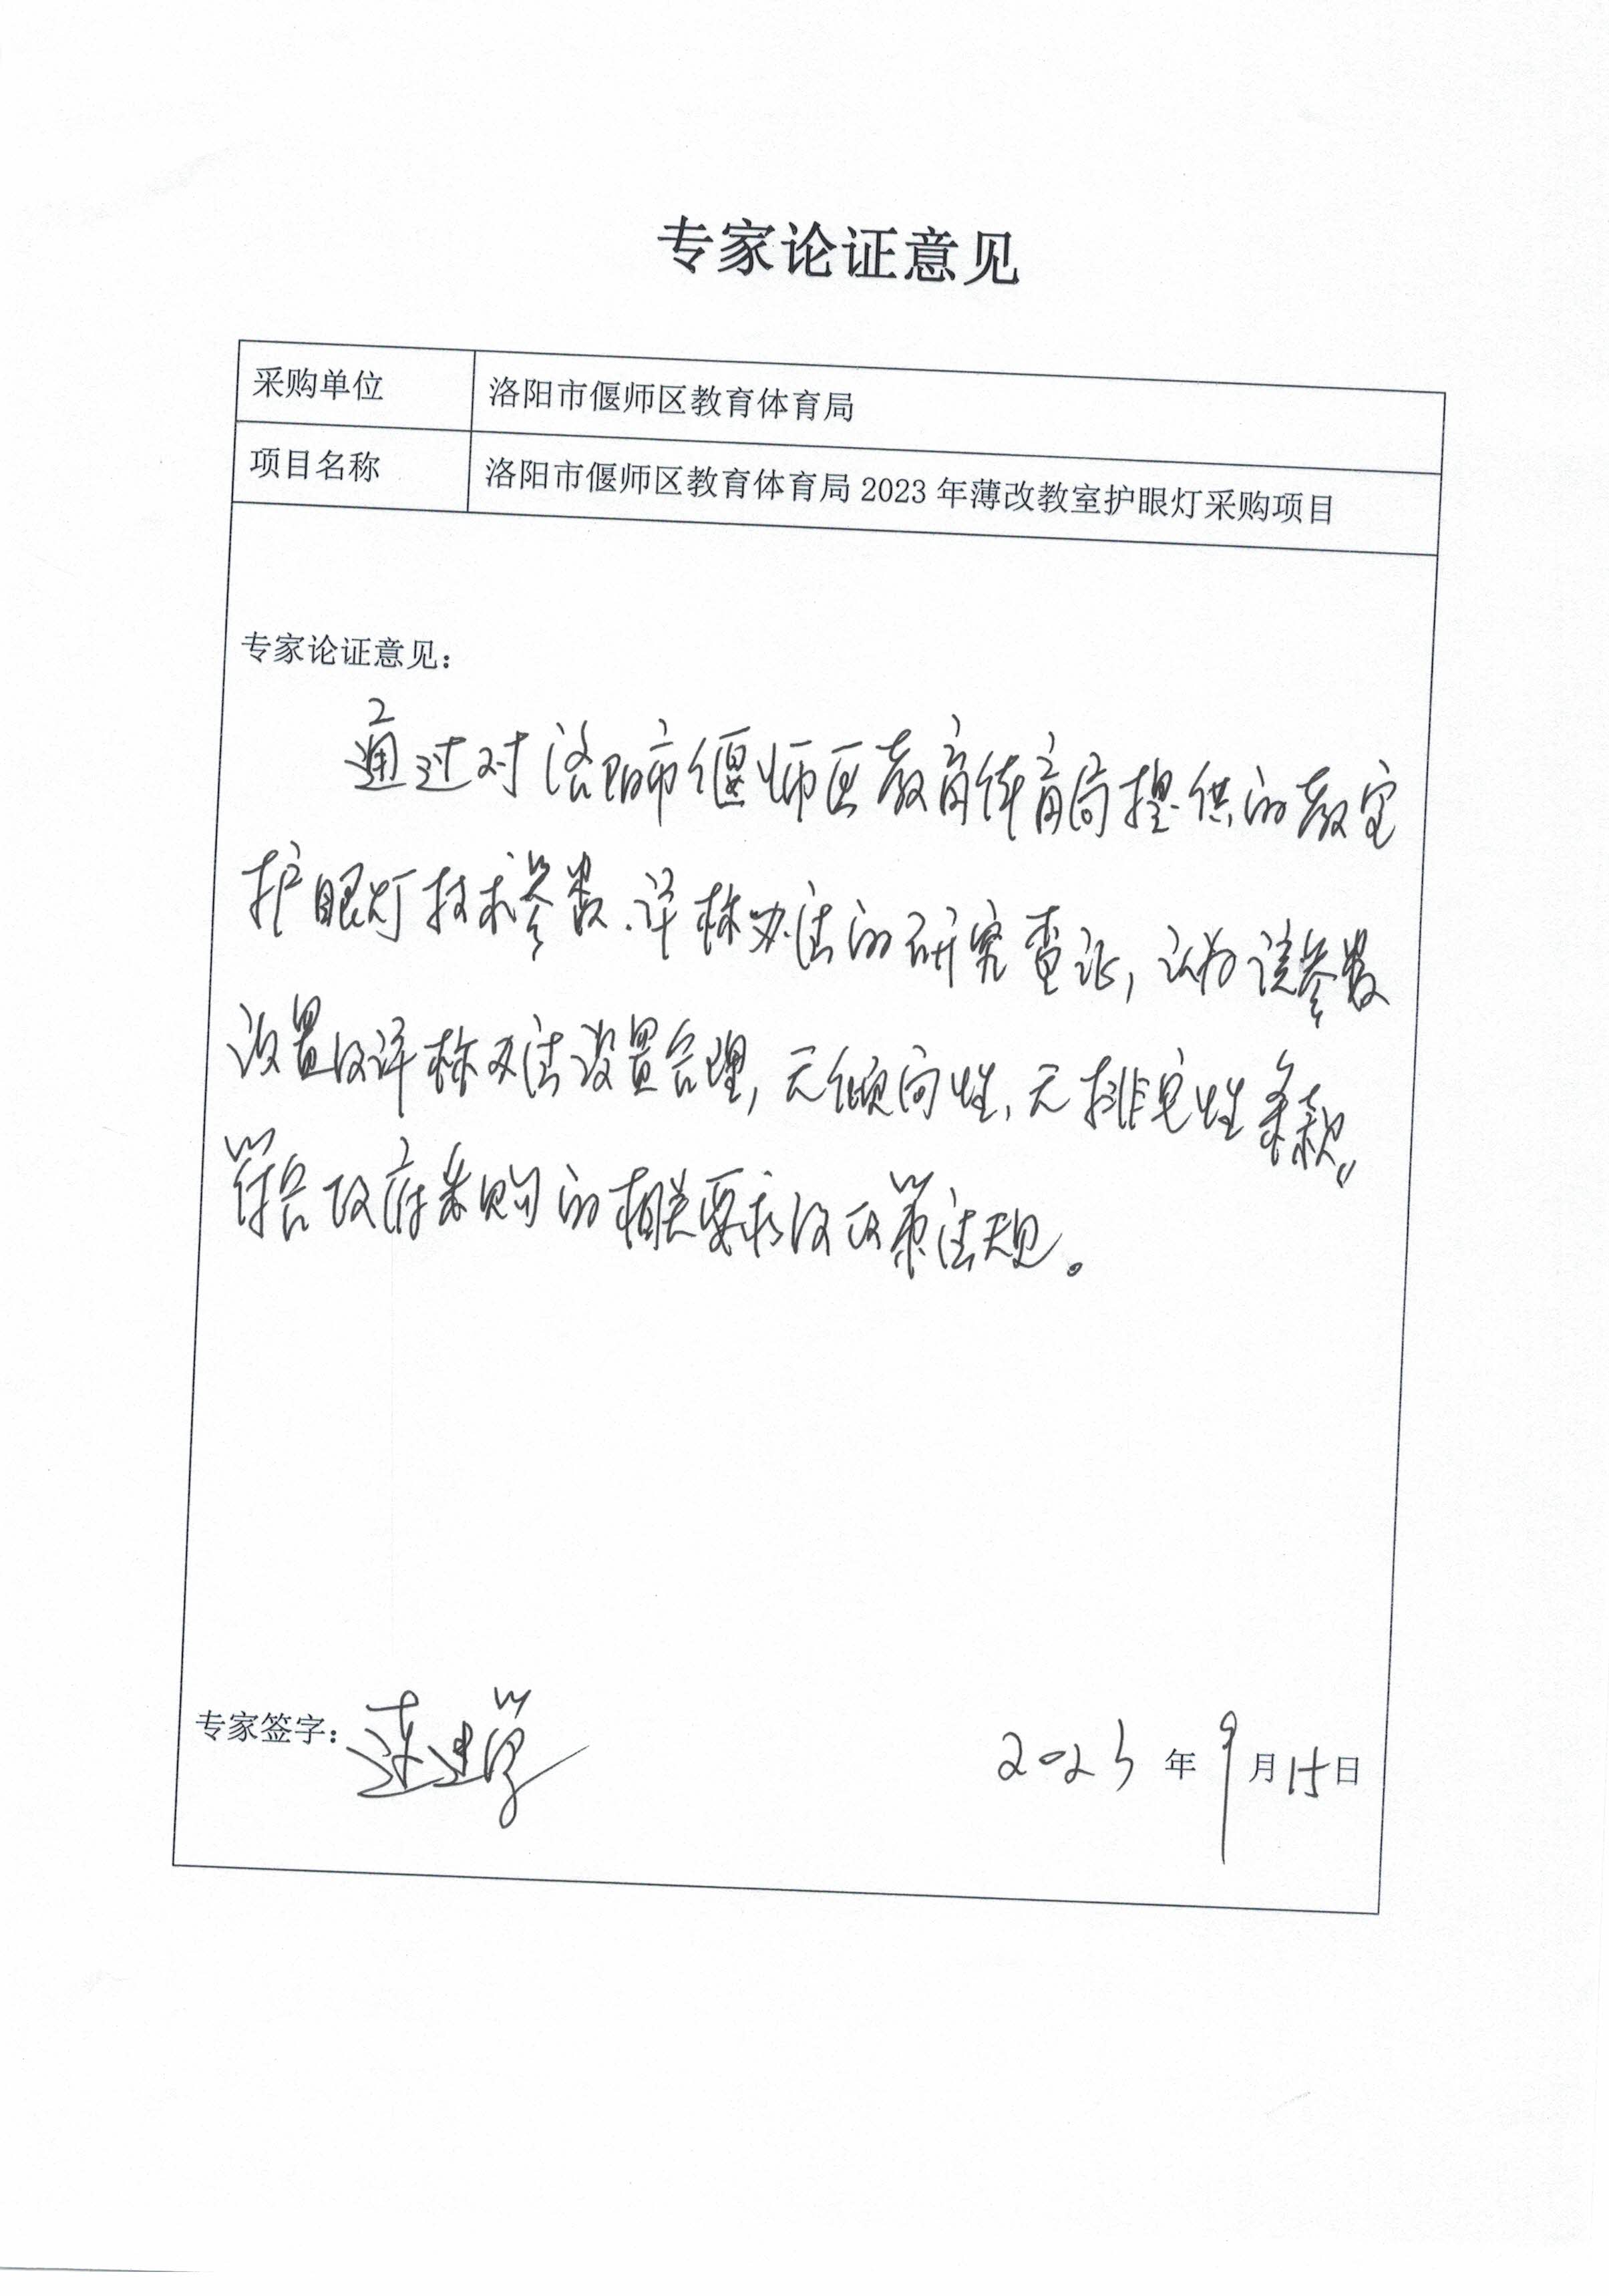 专家论证意见
采购单位 洛阳市偃师区教育体育局
项目名称 洛阳市偃师区教育体育局2023年薄改教室护眼灯采购项目
专家论证意见：
通过对洛阳市偃师区教育体育局提供的教室
护眼灯技术参数、评标办法的研究查证，认为该参数
设置及评标办法设置合理，无倾向性、无排它性条款。
符合政府采购的相关要求及政策法规。
专家签字： 2023年9月15日